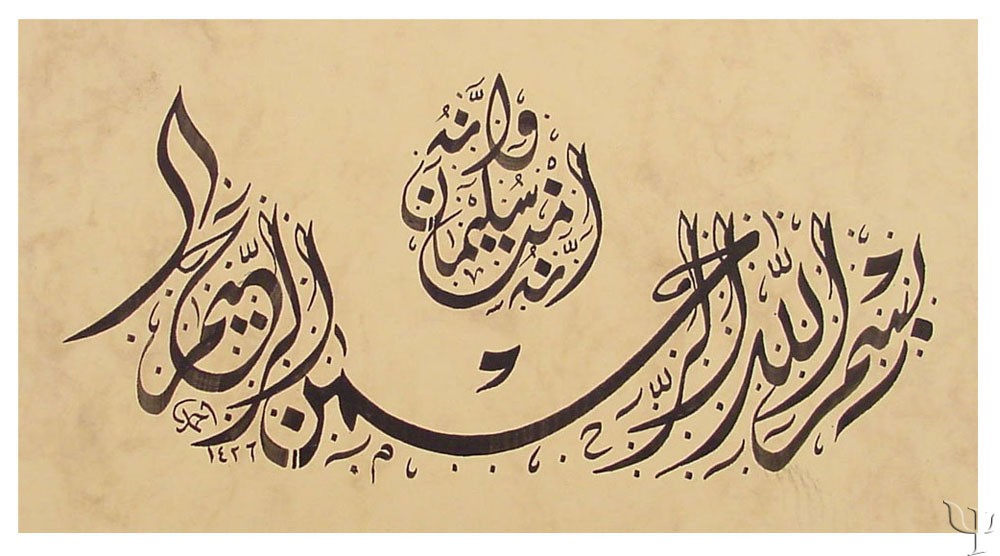 إنه من سليمان وإنه
بسم الله الرحمن الرحيم
احمد
١٤٢٦